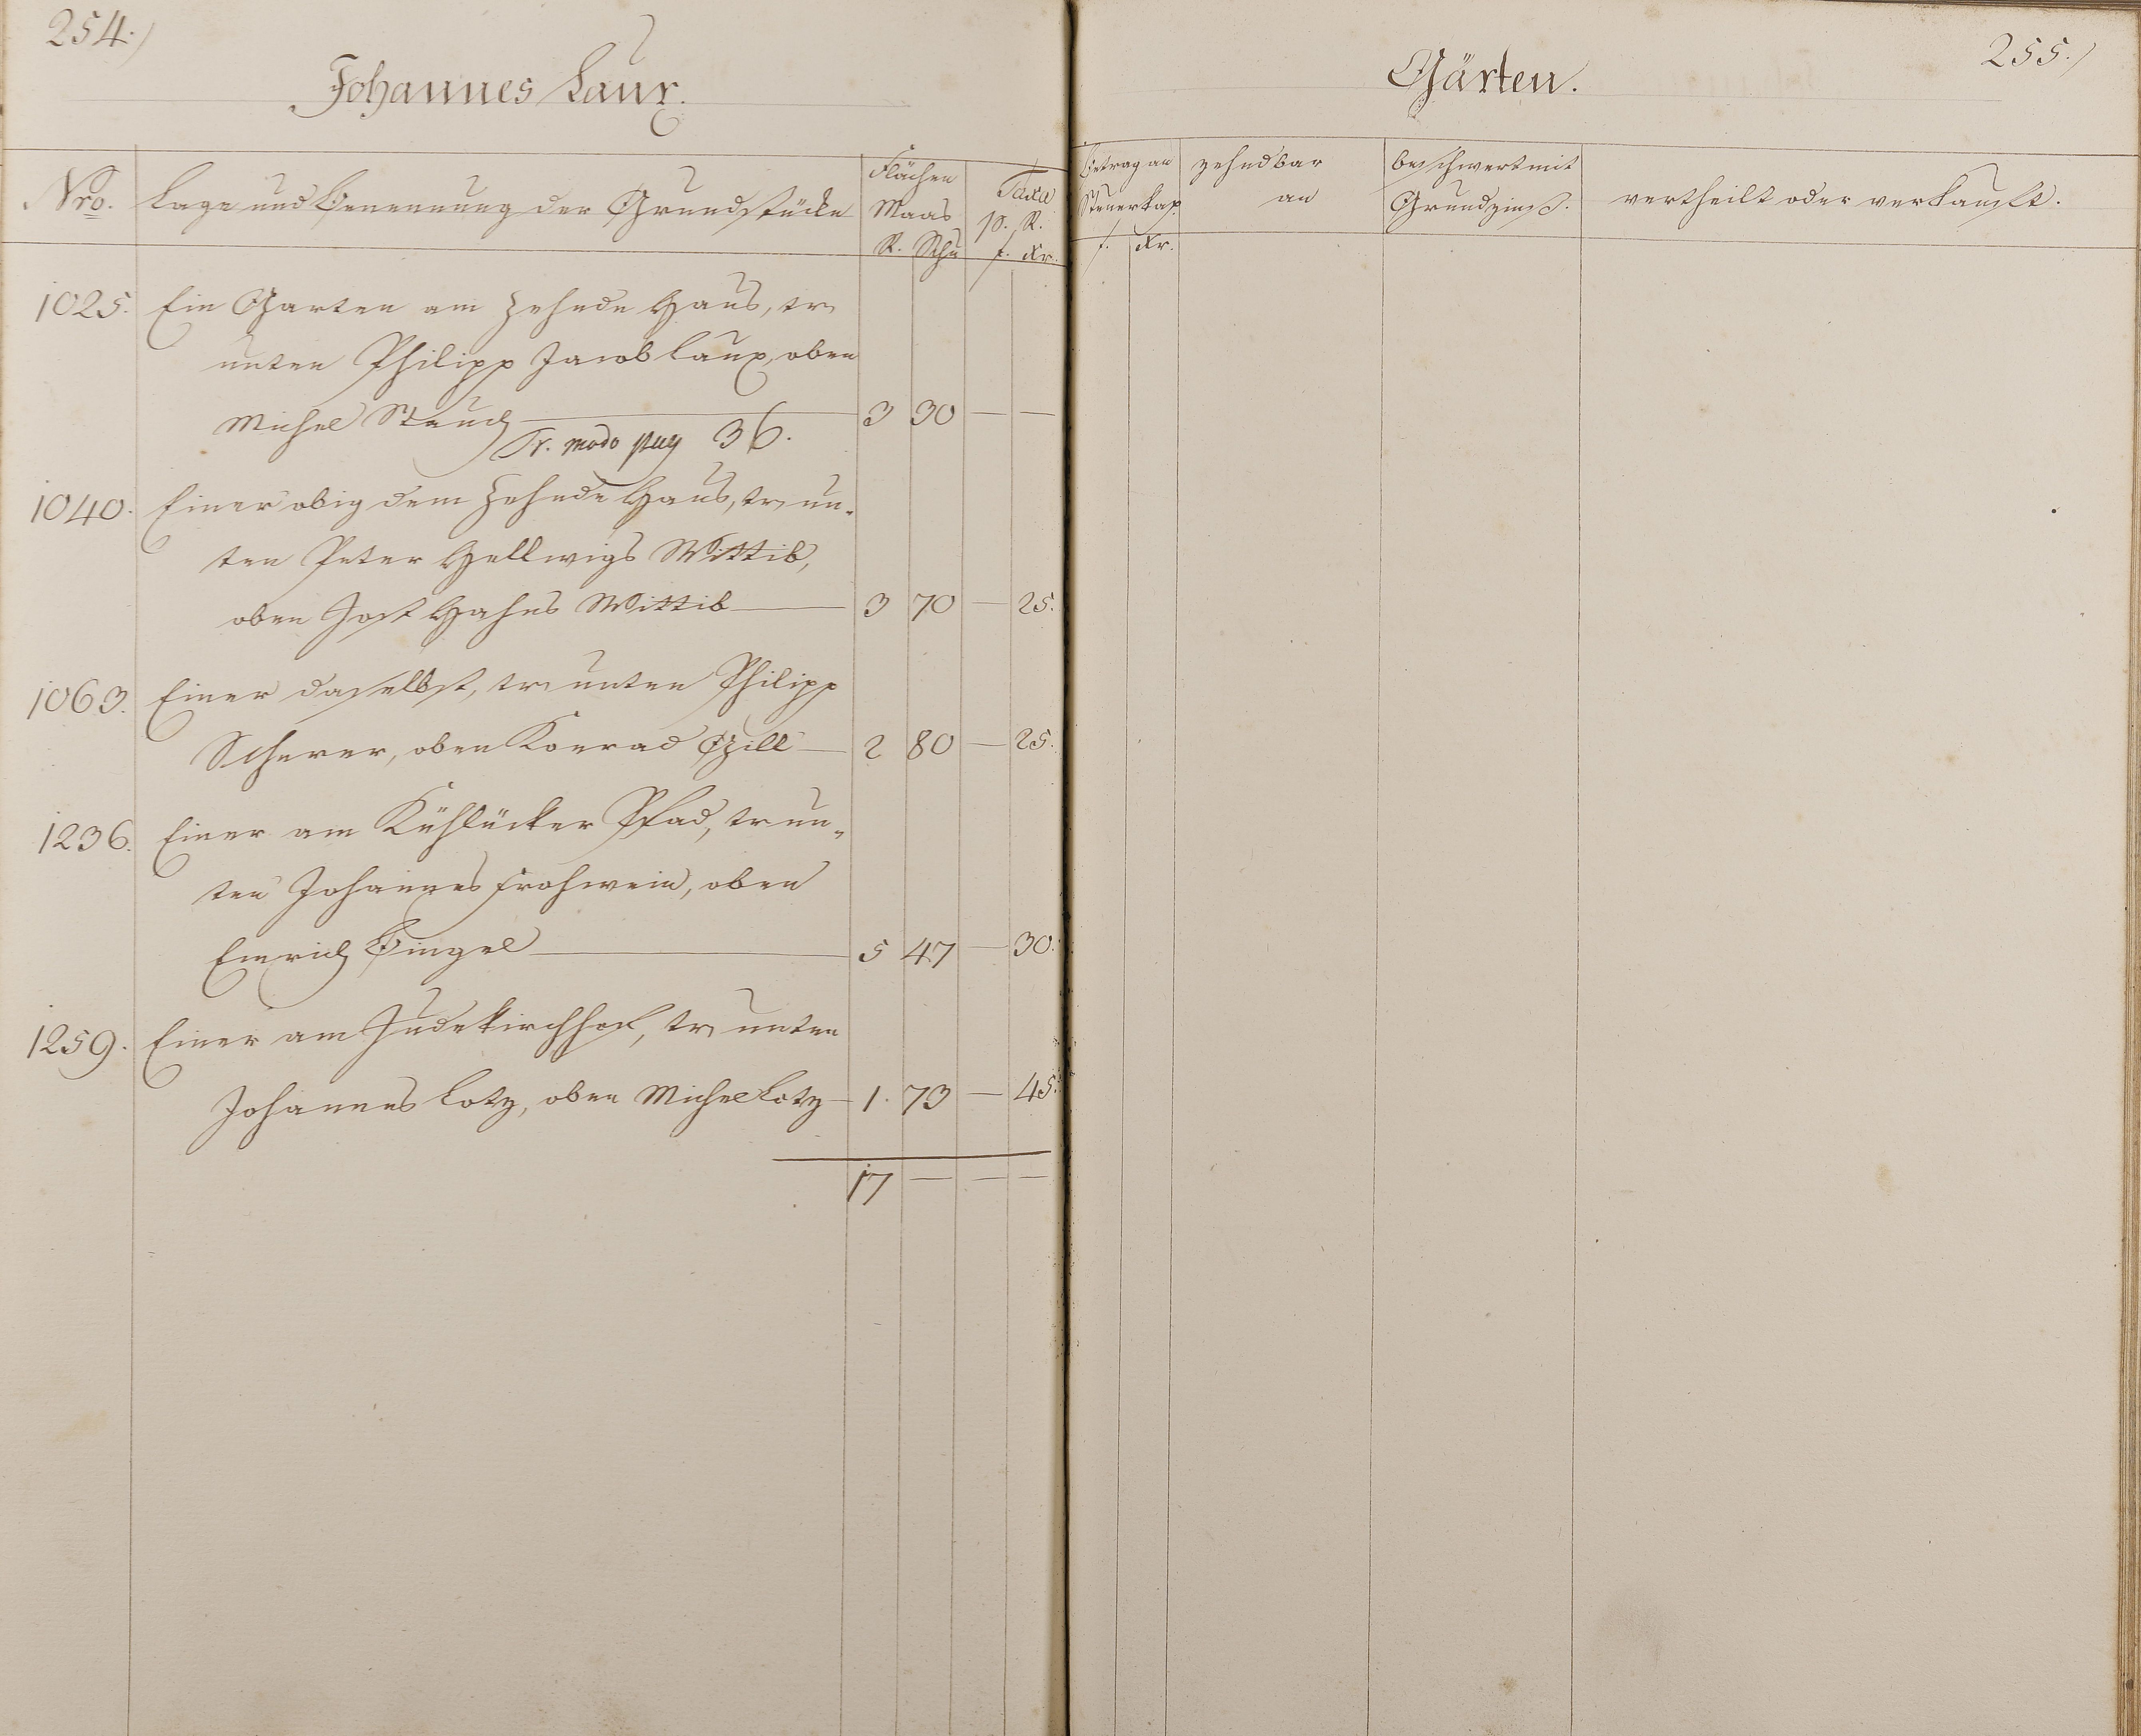 254.)
Johannes Laux.
Nro. Lage und Benennung der Grundstücke Flächen Maas R. Schu Taxa p. R. f. Xr.
1025. Ein Garten am Zehnde Haus, tr.
unten Philipp Jacob Laux, oben
Michel Stauch 3 30 — —
Tr. modo pag 36.
1040. Einer obig dem Zehnde Haus, tr. un-
ten Peter Hellwigs Wittib,
oben Jost Hahns Wittib 3 70 — 25.
1063. Einer daselbst, tr. unten Philipp
Scherer, oben Konrad Gill 2 80 — 25.
1236. Einer am Kühlücker Pfad, tr. un-
ten Johannes Frohwein, oben
Emrich Bingel 5 47 — 30.
1259. Einer am Judekirchhof, tr. unten
Johannes Lotz, oben Michel Lotz 1. 73 — 45.
17 — — —
255.)
Gärten.
Betrag an Steuerkap. f. Xr. zehndbar an beschwert mit Grundzinß. vertheilt oder verkauft.